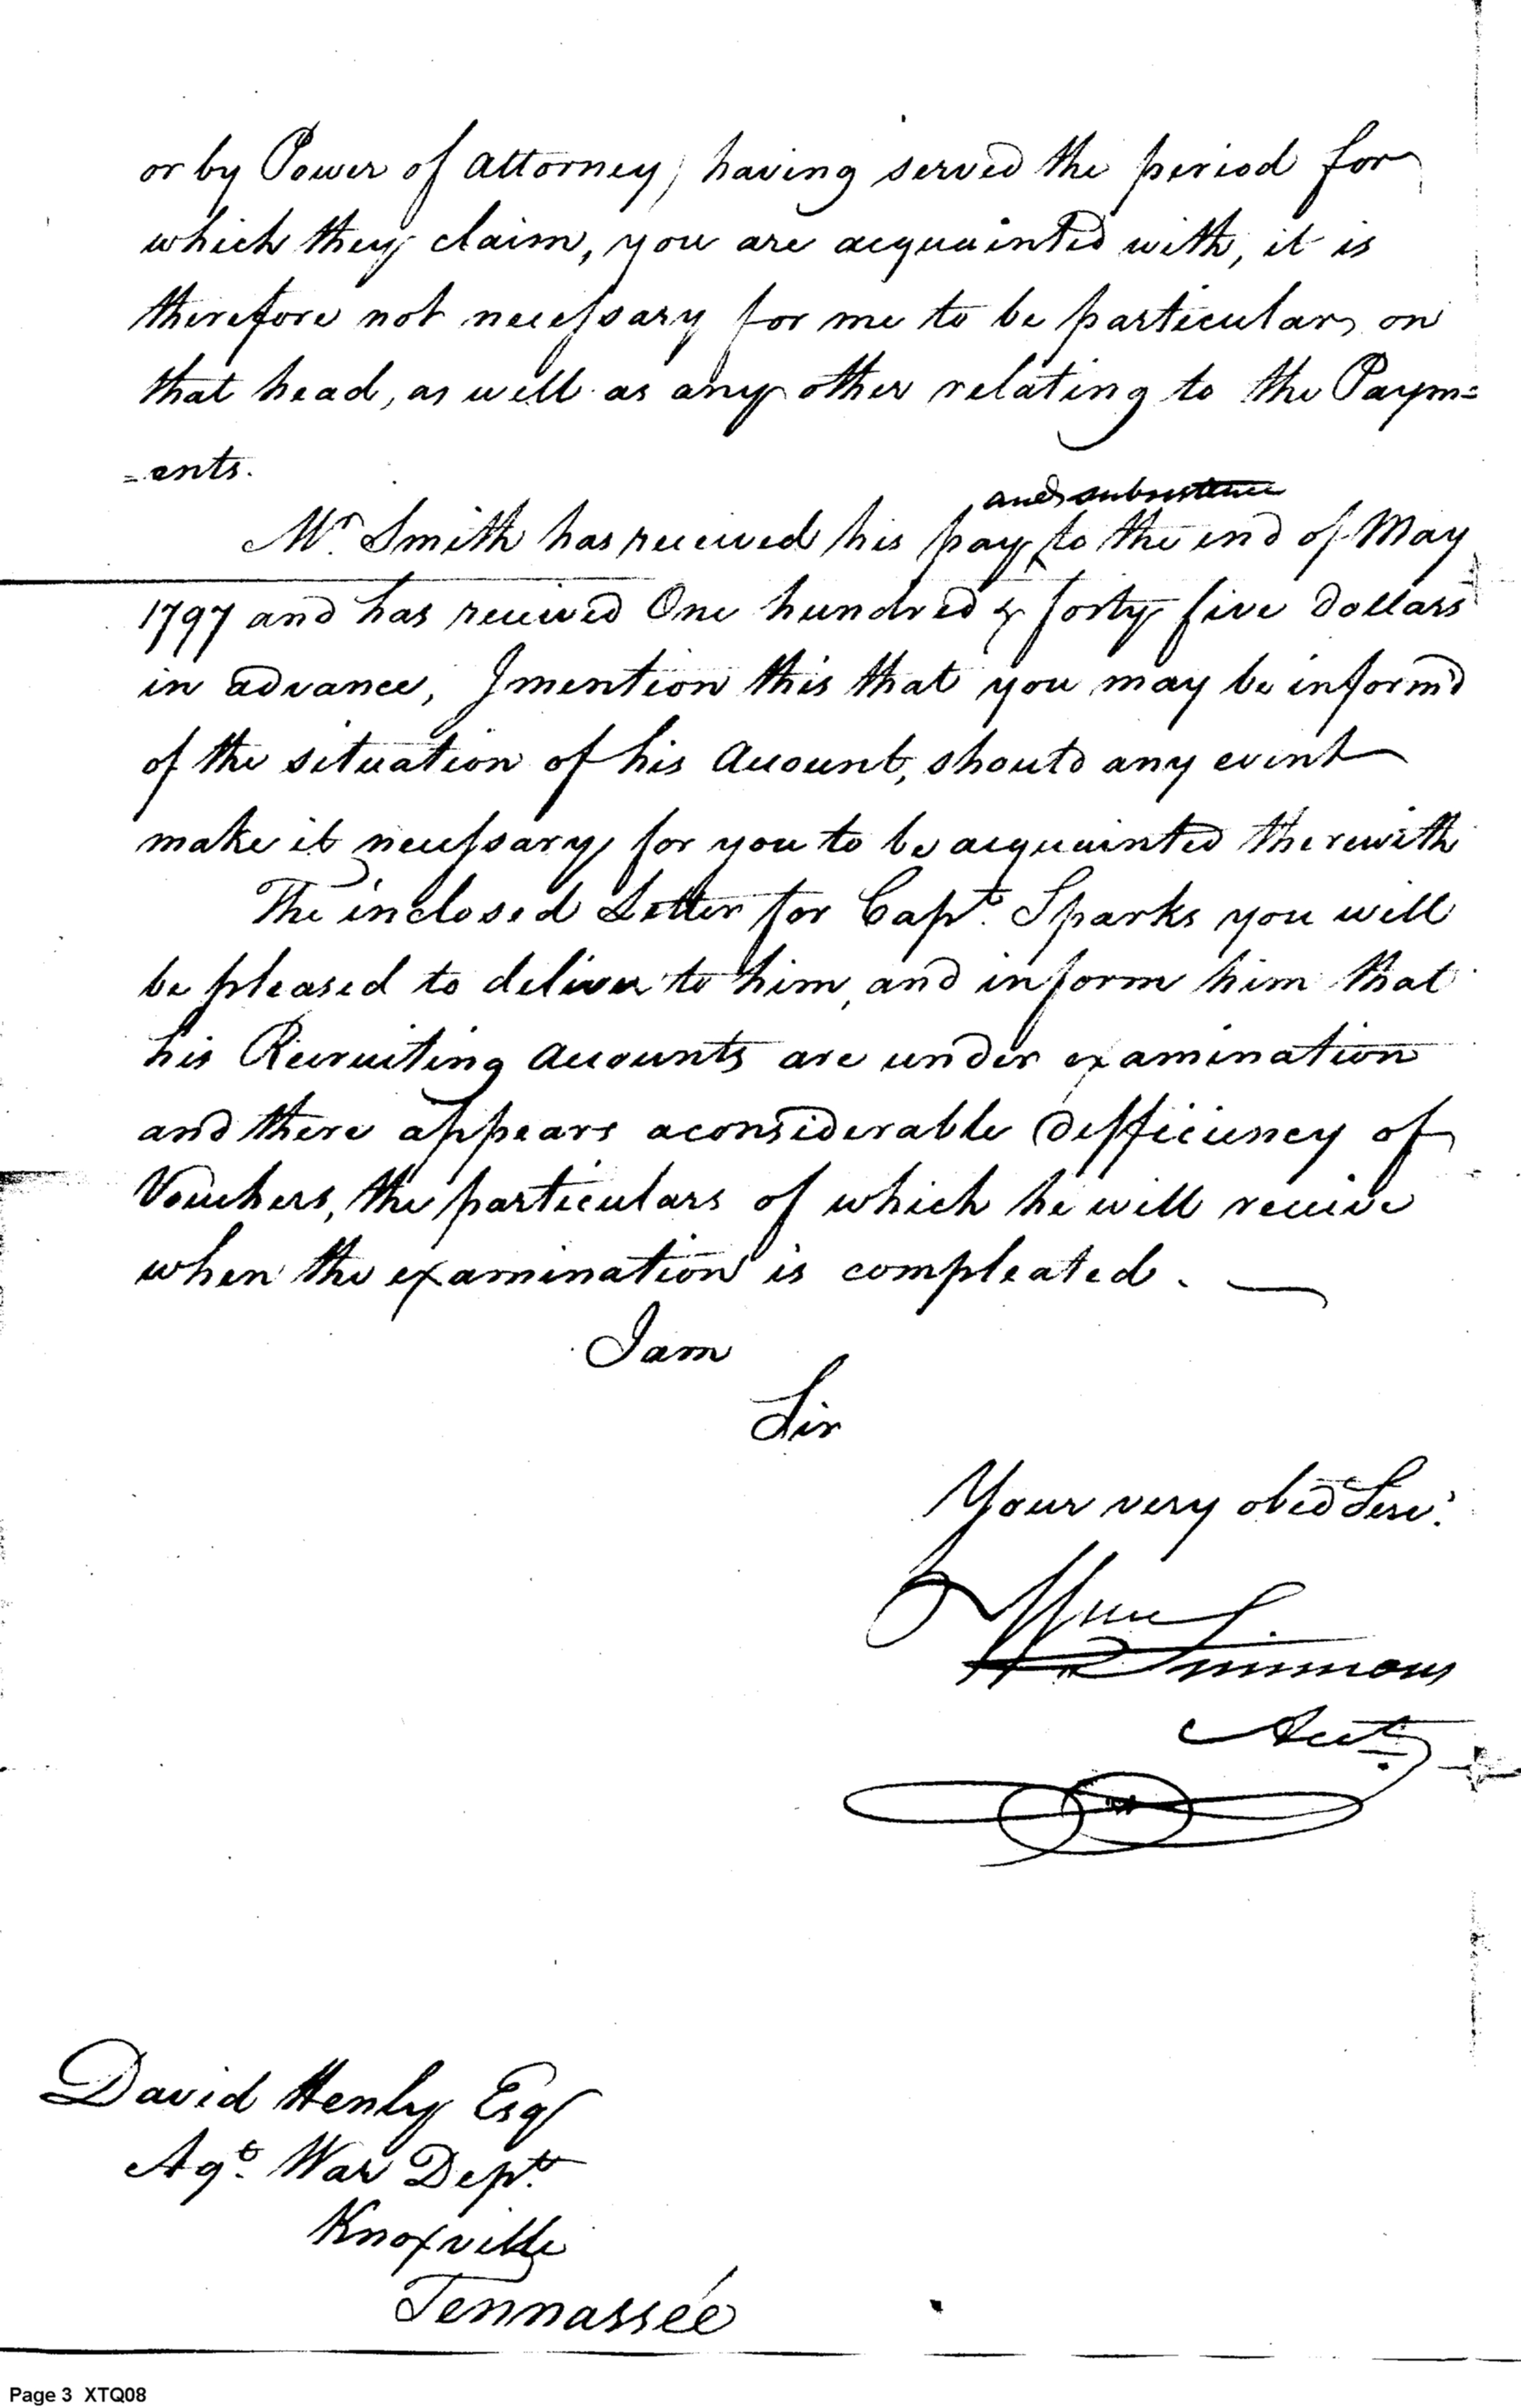 or by Power of attorney, having served the period for
which they claim, you are acquainted with, it is
therefore not necessary for me to be particular, on
that head, as well as any other relating to the Paym=
=ents.
and subsistence
Mr. Smith has received his pay to the end of May
1797 and has received One hundred & forty five dollars
in advance, I mention this that you may be inform'd
of the situation of his Account, should any event
make it necessary for you to be acquainted therewith
The inclosed Letter for Capt. Sparks you will
be pleased to deliver to him, and inform him that
his Recruiting Accounts are under examination
and there appears a considerable defficiency of
Vouchers, the particulars of which he will receive
when the examination is compleated.
I am
Sir
Your very obed Serv.
Wm
Simmons
Acct.
David Henly Esq
Agt. War Dept.
Knoxville
Tennassée
Page 3 XTQ08